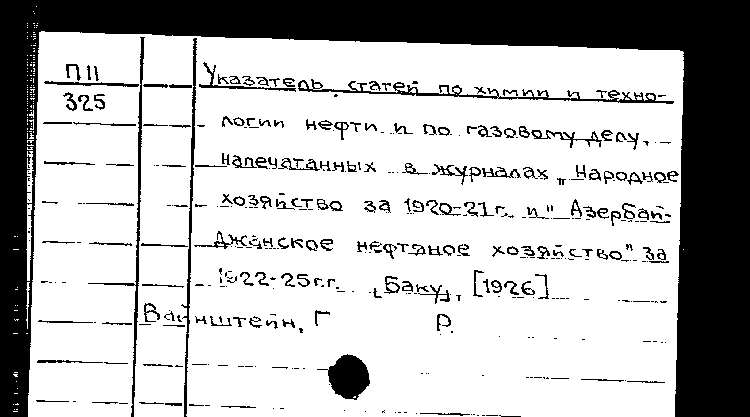 П11
325
Указатель статей по химии и техно-
логии нефти и по газовому делу,
напечатанных в журналах „Народное
хозяйство за 1920-21 г. и" Азербай-
джанское нефтяное хозяйство" за
1922-25г.г. [Баку], [1926]
Вайнштейн, Г Р.